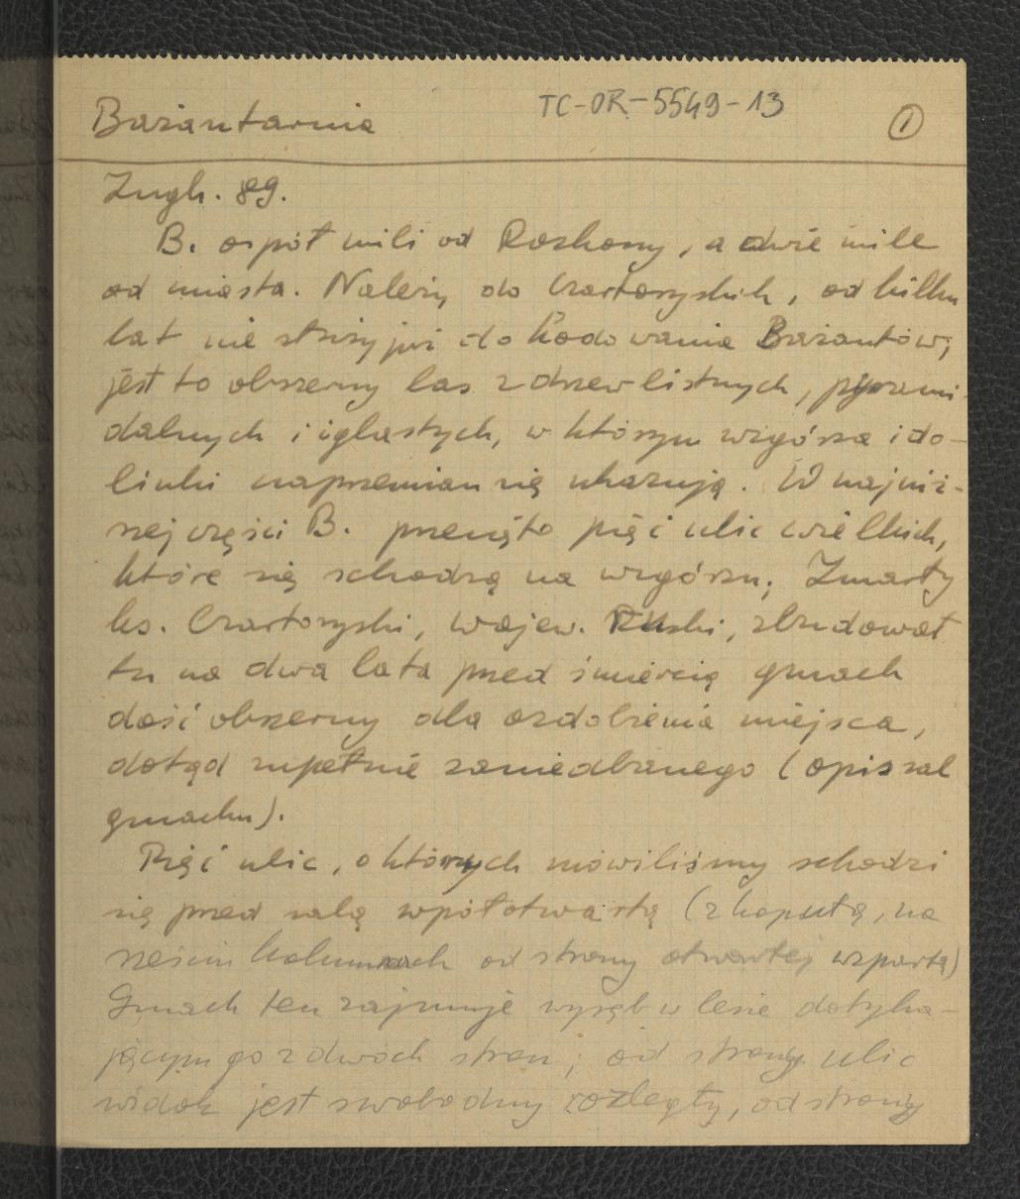 Bażantarnia
TC-OR-5549-13
1
Zugh. 89.
B. o spół mili od Roskoszy, a dwie mile
od miasta. Należy do Czartoryskich, od kilku
lat nie służy już do hodowania Bażantów;
jest to obszerny las z drzew listnych, pyrami-
dalnych i iglastych, w którym wzgórza i do-
linki naprzemian się ukazują. W najniż-
szej części B. przecięto pięć ulic wielkich,
które się schodzą na wzgórzu; Zmarły
ks. Czartoryski, wojew. Ruski, zbudował
tu na dwa lata przed śmiercią gmach
dość obszerny dla ozdobienia miejsca,
dotąd zupełnie zaniedbanego (opis sal
gmachu).
Pięć ulic, o których mówiliśmy schodzi
się przed salą wpółotwartą (z kopułą, na
sześciu kolumnach od strony otwartej wspartą)
Gmach ten zajmuje wyręb w lesie dotyka-
jącym go z dwóch stron; od strony ulic
widok jest swobodny rozległy, od strony